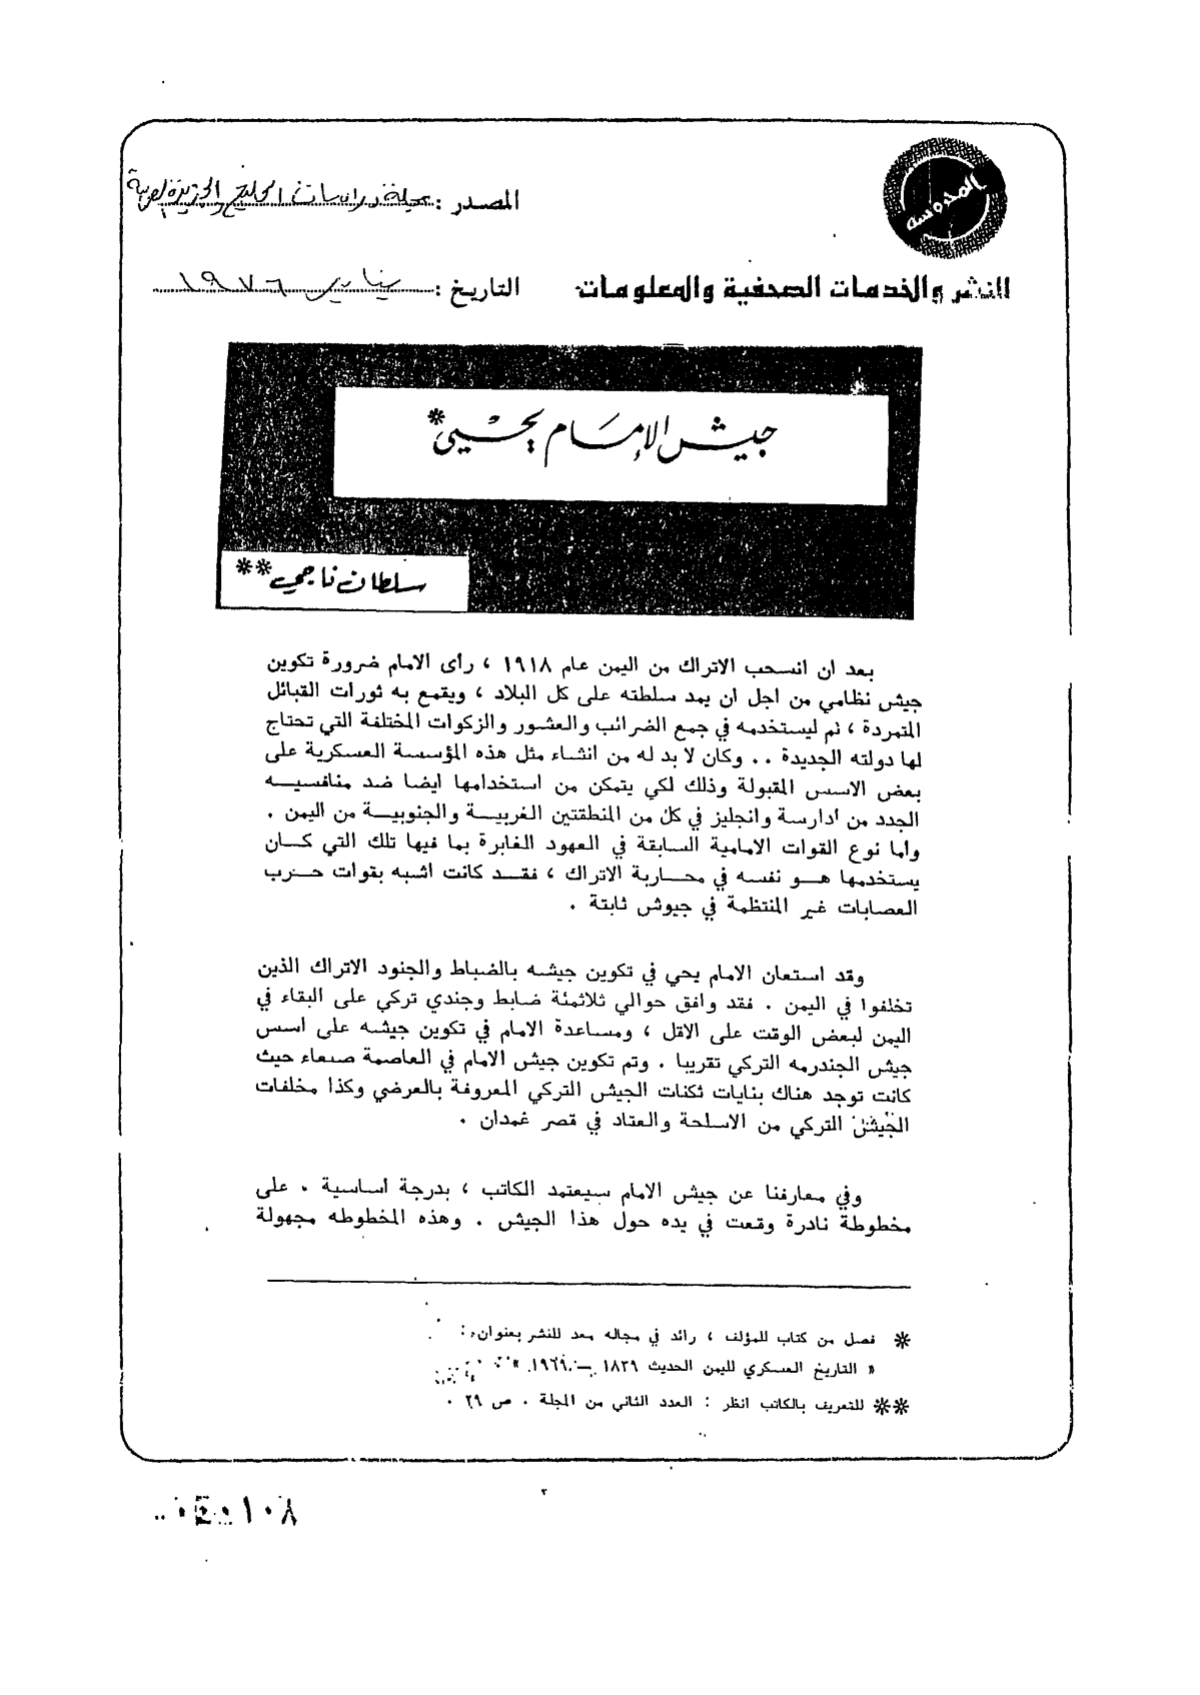 المدوسه
المصدر : مجلة دراسات الخليج والجزيرة العربية
للنشر والخدمات الصحفية والمعلومات
التاريخ : يناير ١٩٧٦
جيش الإمام يحيى*
سلطان ناجي**
بعد ان انسحب الاتراك من اليمن عام ١٩١٨ ، رأى الامام ضرورة تكوين
جيش نظامي من اجل ان يمد سلطته على كل البلاد ، ويقمع به ثورات القبائل
المتمردة ، ثم ليستخدمه في جمع الضرائب والعشور والزكوات المختلفة التي تحتاج
لها دولته الجديدة . . وكان لا بد له من انشاء مثل هذه المؤسسة العسكرية على
بعض الاسس المقبولة وذلك لكي يتمكن من استخدامها ايضا ضد منافسيه
الجدد من أدارسة وانجليز في كل من المنطقتين الغربية والجنوبية من اليمن .
واما نوع القوات الامامية السابقة في العهود الغابرة بما فيها تلك التي كان
يستخدمها هو نفسه في محاربة الاتراك ، فقد كانت اشبه بقوات حرب
العصابات غير المنتظمة في جيوش ثابتة .
وقد استعان الامام يحي في تكوين جيشه بالضباط والجنود الاتراك الذين
تخلفوا في اليمن . فقد وافق حوالي ثلاثمئة ضابط وجندي تركي على البقاء في
اليمن لبعض الوقت على الاقل ، ومساعدة الامام في تكوين جيشه على اسس
جيش الجندرمه التركي تقريبا . وتم تكوين جيش الامام في العاصمة صنعاء حيث
كانت توجد هناك بنايات ثكنات الجيش التركي المعروفة بالعرضي وكذا مخلفات
الجيش التركي من الاسلحة والعتاد في قصر غمدان .
وفي معارفنا عن جيش الامام سيعتمد الكاتب ، بدرجة اساسية . على
مخطوطة نادرة وقعت في يده حول هذا الجيش . وهذه المخطوطه مجهولة
* فصل من كتاب للمؤلف ، رائد في مجاله معد للنشر بعنوان :
« التاريخ العسكري لليمن الحديث ١٨٣٩ — ١٩٦٩ »
** للتعريف بالكاتب انظر : العدد الثاني من المجلة . ص ٢٩ .
٣